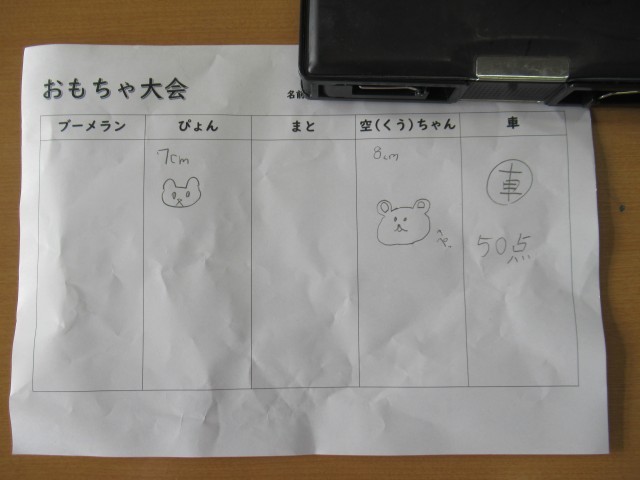 おもちゃ大会
名前
ブーメラン ぴょん まと 空(くう)ちゃん 車
7cm 8cm 車
50点